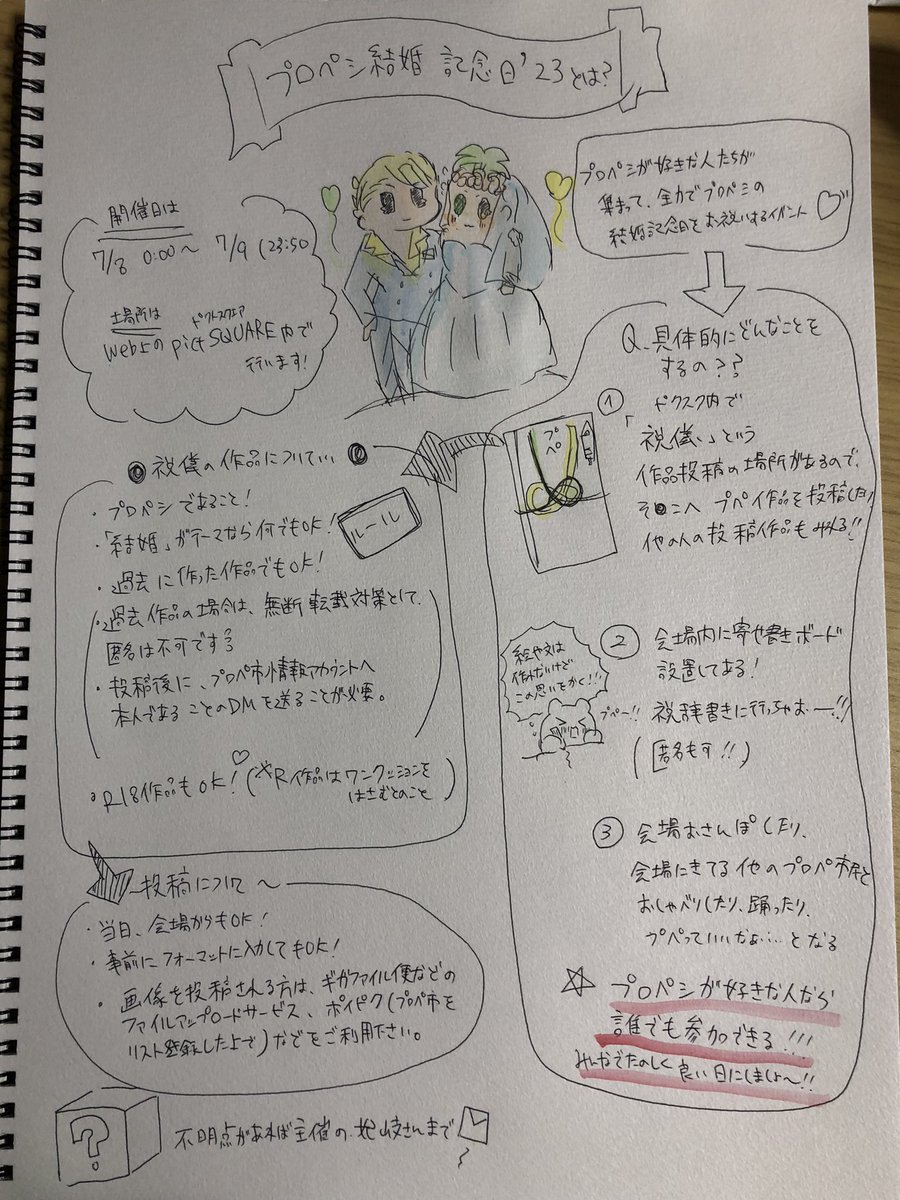 プロペシ結婚記念日'23とは?
プロペシが好きな人たちが
集まって、全力でプロペシの
結婚記念日をお祝いするイベント
開催日は
7/8 0:00〜 7/9 (23:50
場所は
web上のpictSQUARE内で
行います!
Q.具体的にどんなことを
するの??
① ピクスク内で
「祝儀」という
作品投稿の場所があるので、
そこへ プペ作品を投稿したり
他の人の投稿作品もみれる!!
プペ
② 会場内に寄せ書きボード
設置してある!
祝辞書きに行っちゃおー!!
(匿名も可!!)
絵や文は
作れないけど
この思いをかく!!
プペー!!
③ 会場おさんぽしたり、
会場にきてる他のプロペ市民と
おしゃべりしたり、踊ったり、
プペっていいなぁ…となる
☆ プロペシが好きな人なら
誰でも参加できる!!!
みんなでたのしく 良い日にしましょ〜!!
祝儀の作品について…
ルール
・プロペシであること!
・「結婚」がテーマなら何でもOK!
・過去に作った作品でもOK!
・過去作品の場合は、無断転載対策として、
匿名は不可です
・投稿後に、プロペ市情報アカウントへ
本人であることのDMを送ることが必要。
・R18作品もOK!♡(※R作品はワンクッションを
はさむとのこと)
投稿について〜
・当日、会場からもOK!
・事前にフォーマットに入力してもOK!
・画像を投稿される方は、ギガファイル便などの
ファイルアップロードサービス、ポイピク(プロペ市を
リスト登録した上で)などをご利用下さい。
?
不明点があれば主催の さんまで